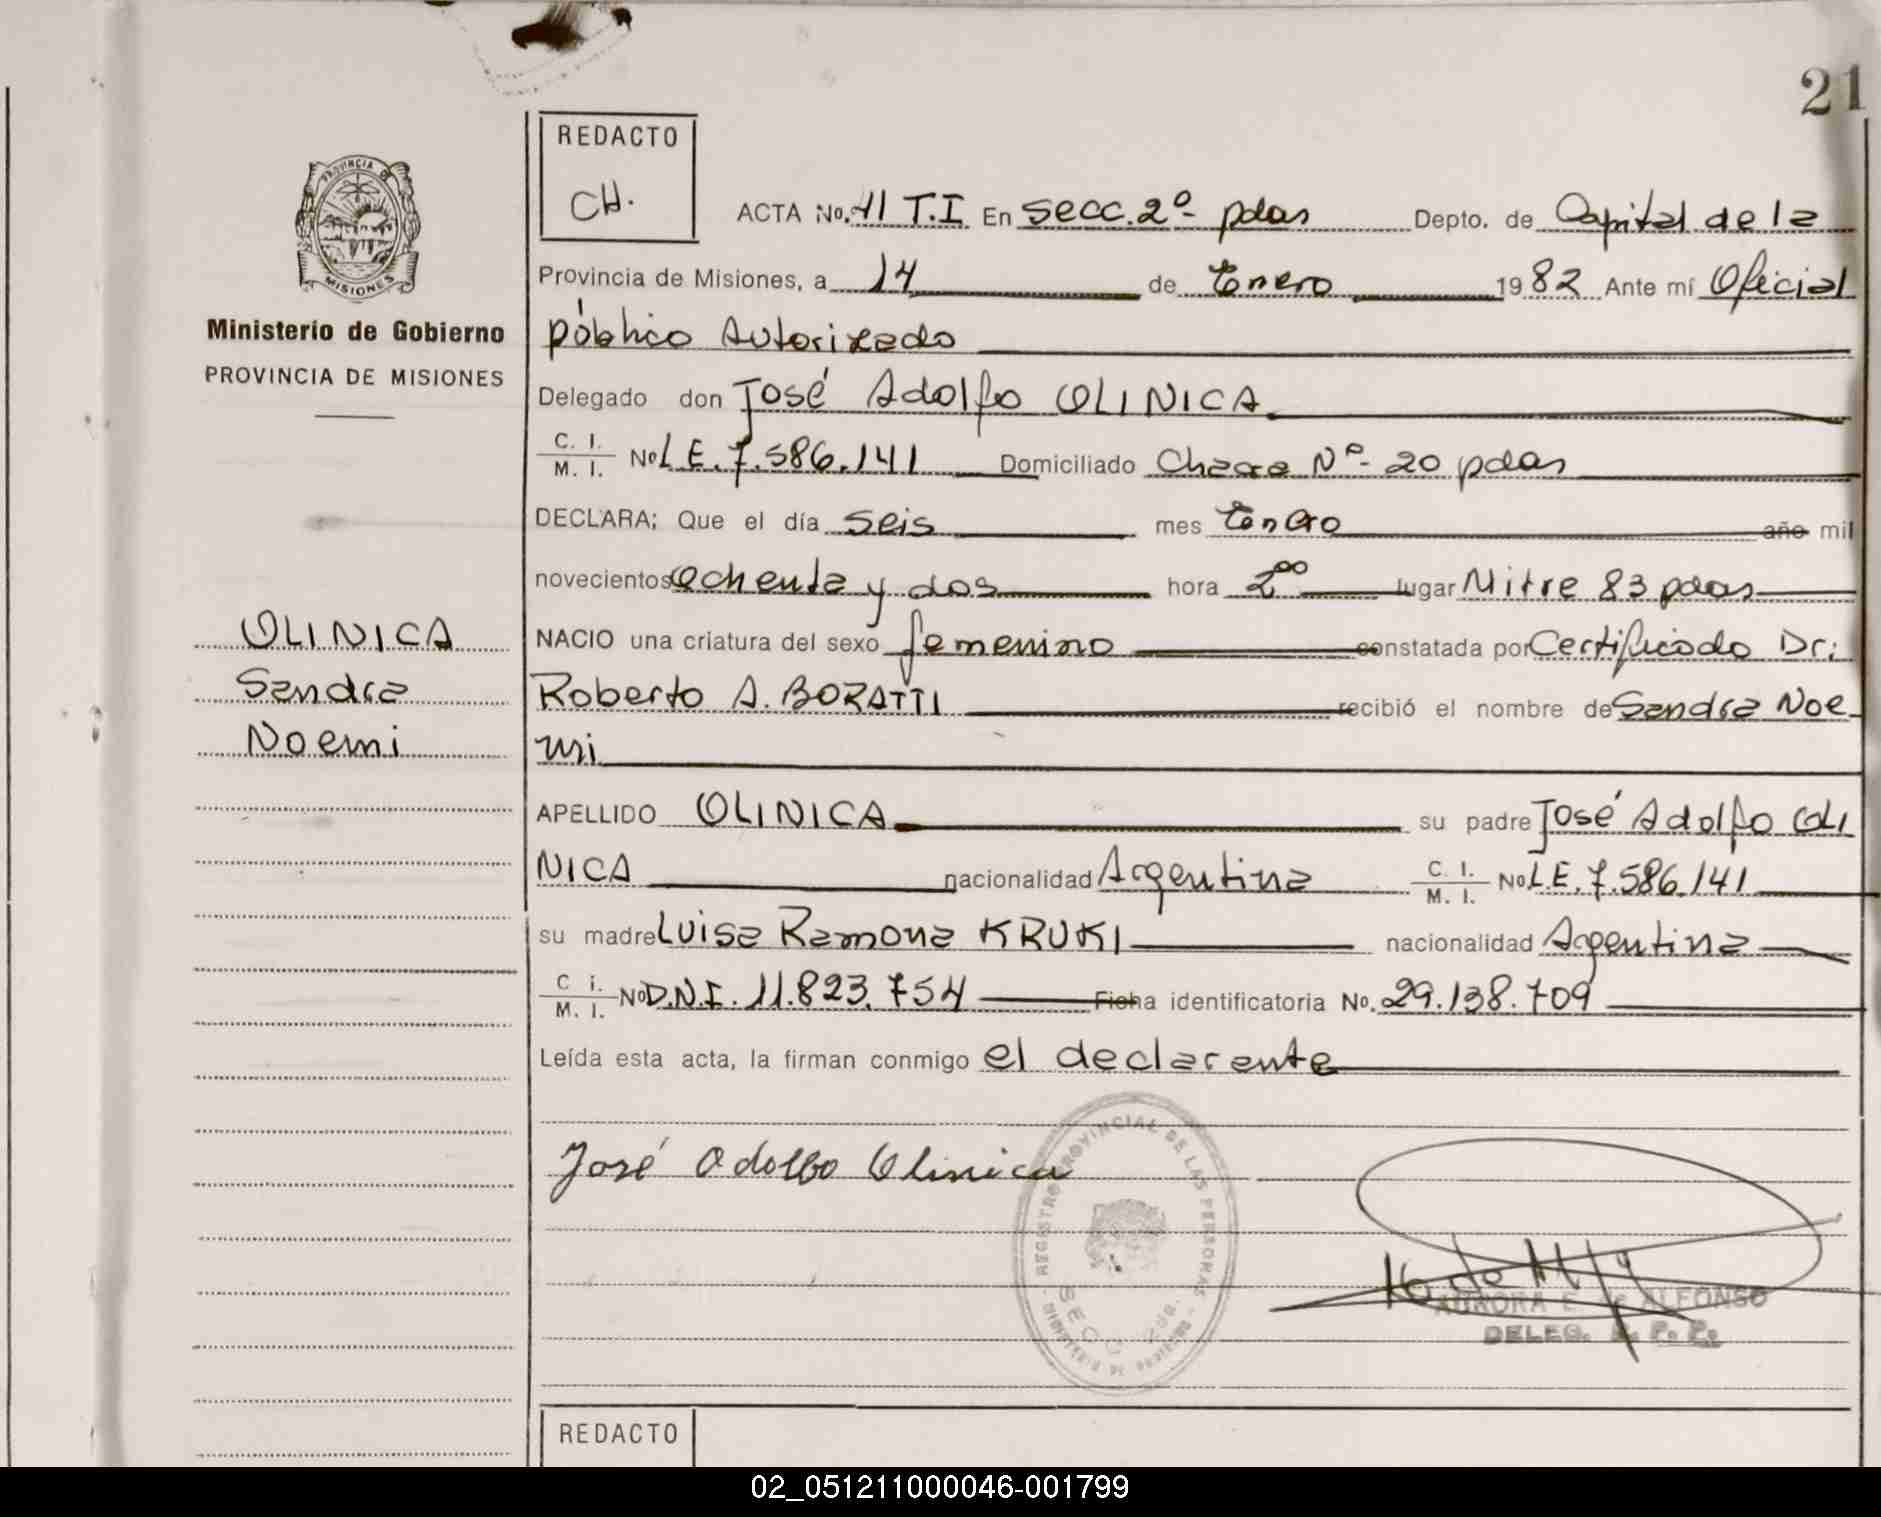 21
REDACTO
CH.
PROVINCIA DE
MISIONES
Ministerio de Gobierno
PROVINCIA DE MISIONES
OLINICA
Sandra
Noemi
ACTA No. 41 T.I En secc. 2º- pdas Depto. de Capital de la
Provincia de Misiones, a 14 de Enero 1982 Ante mí Oficial
público Autorizado
Delegado don José Adolfo OLINICA
C. I.
M. I. No L.E. 7.586.141 Domiciliado Chacra Nº- 20 pdas
DECLARA; Que el día seis mes Enero año mil
novecientos ochenta y dos hora 2⁰⁰ lugar Mitre 83 pdas
NACIO una criatura del sexo femenino constatada por Certificado Dr:
Roberto A. BORATTI recibió el nombre de Sandra Noe
mi
APELLIDO OLINICA su padre José Adolfo OLI
NICA nacionalidad Argentina C. I.
M. I. No L.E. 7.586.141
su madre Luisa Ramona KRUKI nacionalidad Argentina
C i.
M. I. No D.N.I. 11.823.754 Ficha identificatoria No. 29.138.709
Leída esta acta, la firman conmigo el declarante
José Adolfo Olinica
REGISTRO PROVINCIAL DE LAS PERSONAS
AURORA E. de ALFONSO
DELEG. R. P. P.
REDACTO
02_051211000046-001799